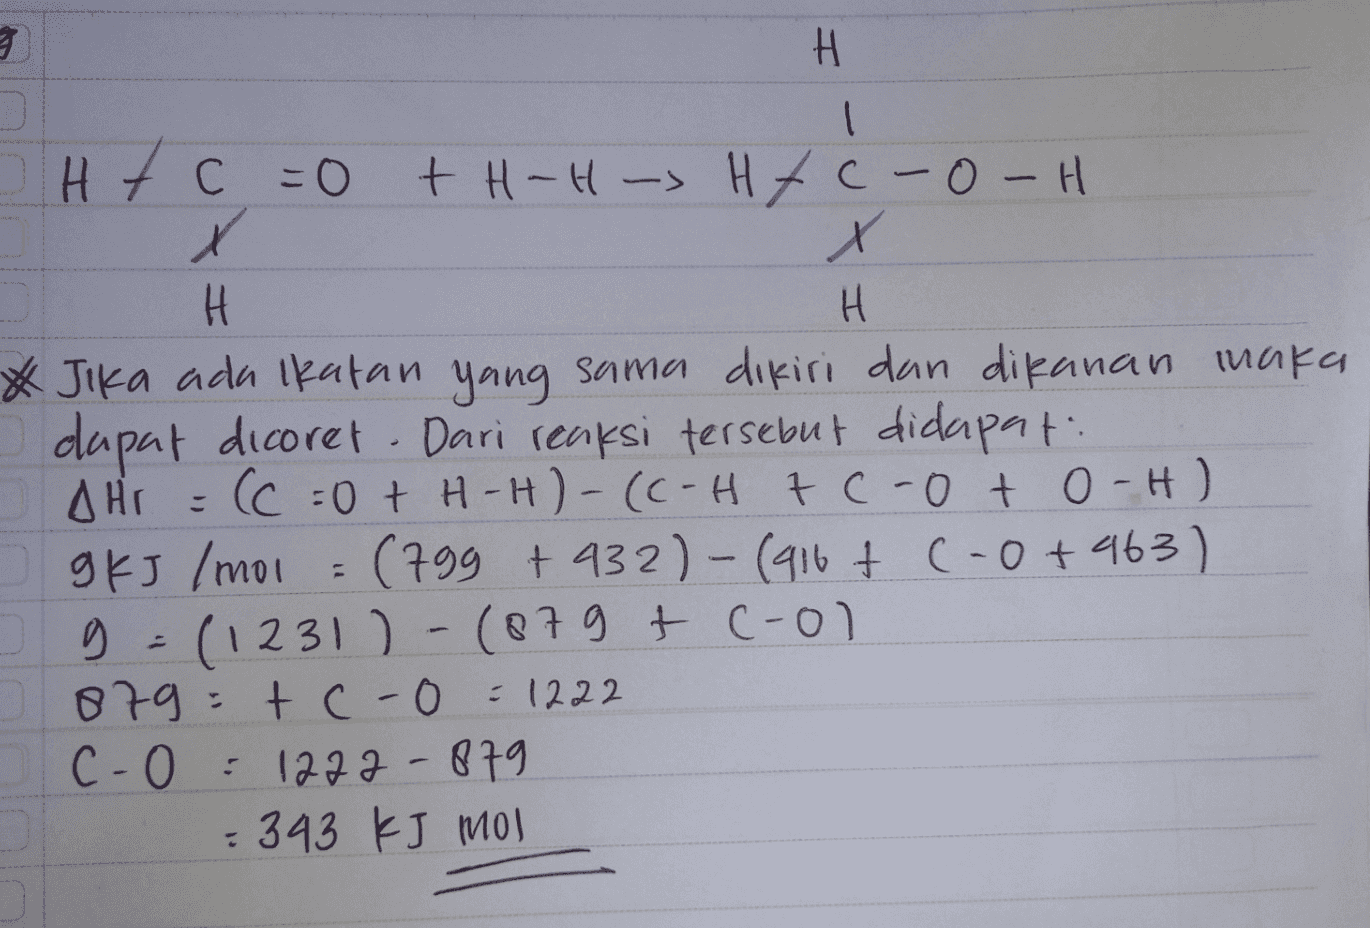 H
|
H / C = O + H - H -> H / C - O - H
X X
H H
* Jika ada ikatan yang sama dikiri dan dikanan maka
dapat dicoret. Dari reaksi tersebut didapat:
ΔHr = (C = O + H - H) - (C - H + C - O + O - H)
9 KJ /mol = (799 + 432) - (416 + C - O + 463)
9 = (1231) - (879 + C - O)
879 = + C - O = 1222
C - O = 1222 - 879
= 343 KJ mol